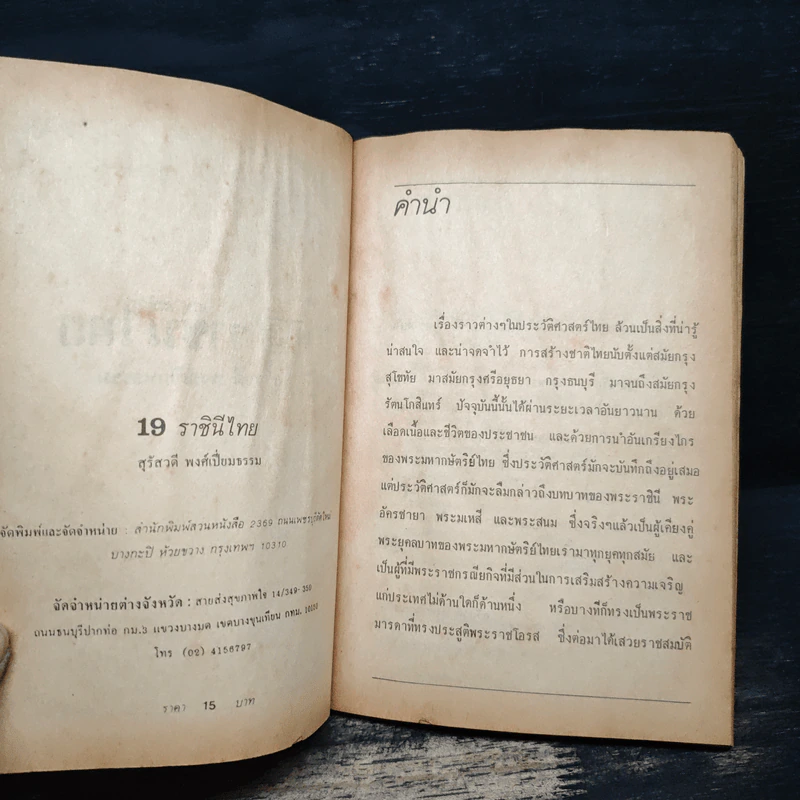 19 ราชินีไทย
สุรัสวดี พงศ์เปี่ยมธรรม
จัดพิมพ์และจัดจำหน่าย : สำนักพิมพ์สวนหนังสือ 2369 ถนนเพชรบุรีตัดใหม่
บางกะปิ ห้วยขวาง กรุงเทพฯ 10310
จัดจำหน่ายต่างจังหวัด : สายส่งสุขภาพใจ 14/349-350
ถนนธนบุรีปากท่อ กม.3 แขวงบางมด เขตบางขุนเทียน กทม. 10150
โทร (02) 4156797
ราคา 15 บาท
คำนำ
เรื่องราวต่างๆในประวัติศาสตร์ไทย ล้วนเป็นสิ่งที่น่ารู้
น่าสนใจ และน่าจดจำไว้ การสร้างชาติไทยนับตั้งแต่สมัยกรุง
สุโขทัย มาสมัยกรุงศรีอยุธยา กรุงธนบุรี มาจนถึงสมัยกรุง
รัตนโกสินทร์ ปัจจุบันนี้นั้นได้ผ่านระยะเวลาอันยาวนาน ด้วย
เลือดเนื้อและชีวิตของประชาชน และด้วยการนำอันเกรียงไกร
ของพระมหากษัตริย์ไทย ซึ่งประวัติศาสตร์มักจะบันทึกถึงอยู่เสมอ
แต่ประวัติศาสตร์ก็มักจะลืมกล่าวถึงบทบาทของพระราชินี พระ
อัครชายา พระมเหสี และพระสนม ซึ่งจริงๆแล้วเป็นผู้เคียงคู่
พระยุคลบาทของพระมหากษัตริย์ไทยเรามาทุกยุคทุกสมัย และ
เป็นผู้ที่มีพระราชกรณียกิจที่มีส่วนในการเสริมสร้างความเจริญ
แก่ประเทศไม่ด้านใดก็ด้านหนึ่ง หรือบางทีก็ทรงเป็นพระราช
มารดาที่ทรงประสูติพระราชโอรส ซึ่งต่อมาได้เสวยราชสมบัติ